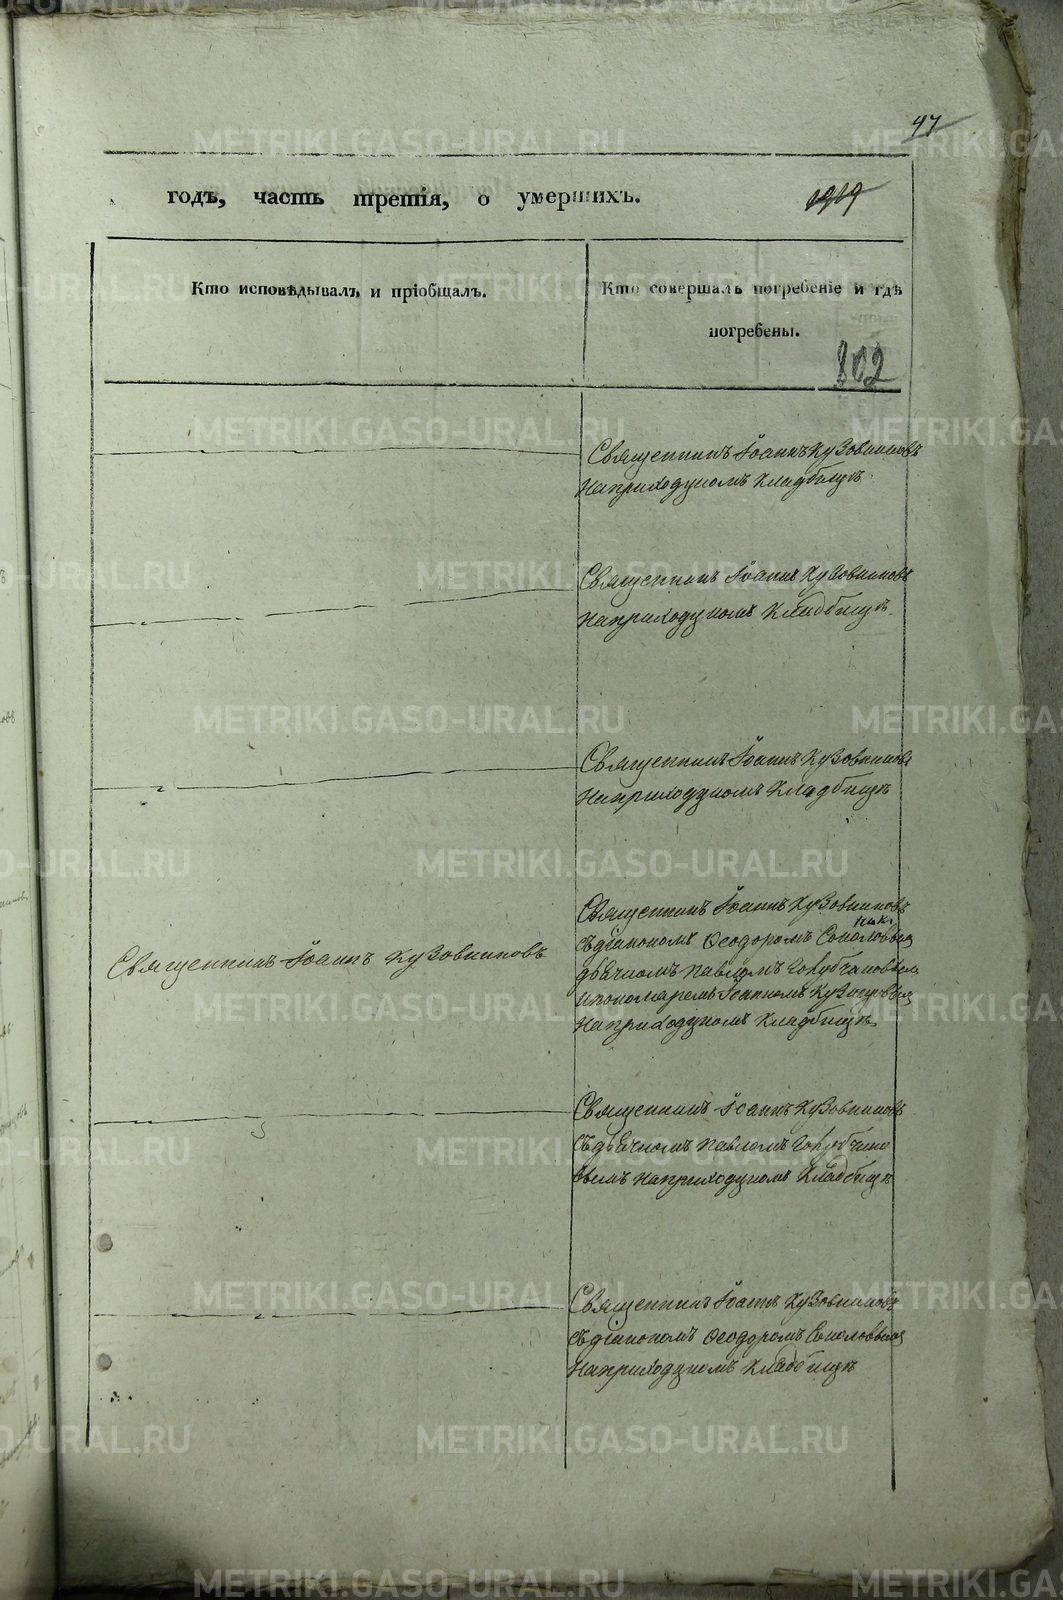 47
годъ, часть третія, о умершихъ.
Кто исповѣдывалъ и пріобщалъ.
Кто совершалъ погребеніе и гдѣ
погребены.
802
Священникъ Іоаннъ Кузовниковъ
на приходскомъ кладбищѣ.
Священникъ Іоаннъ Кузовниковъ
на приходскомъ кладбищѣ.
Священникъ Іоаннъ Кузовниковъ
на приходскомъ кладбищѣ
Священникъ Іоаннъ Кузовниковъ
Священникъ Іоаннъ Кузовниковъ
съ діакономъ Ѳеодоромъ
дьячкомъ Павломъ
и пономаремъ Іоанномъ
на приходскомъ кладбищѣ
Священникъ Іоаннъ Кузовниковъ
съ дьячкомъ Павломъ Голубчико
вымъ на приходскомъ кладбищѣ
Священникъ Іоаннъ Кузовниковъ
съ діакономъ Ѳеодоромъ Соколовымъ
на приходскомъ кладбищѣ
METRIKI.GASO-URAL.RU